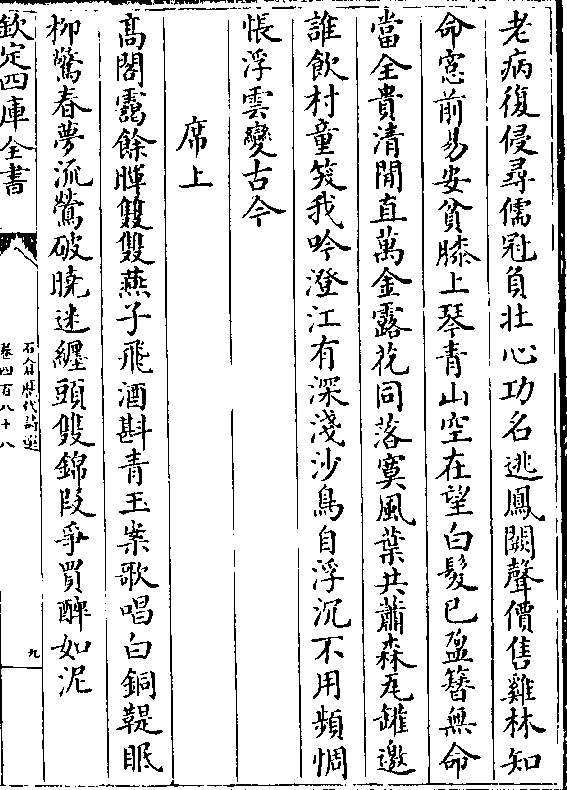 老病復侵尋儒冠負壯心功名逃鳳闕聲價售雞林知
命窓前易安貧膝上琴青山空在望白髮已盈簪無命
當全貴清閒直萬金露花同落寞風葉共蕭森瓦罐邀
誰飲村童笑我吟澄江有深淺沙鳥自浮沉不用頻惆
悵浮雲變古今
席上
髙閣靄餘暉雙雙燕子飛酒斟青玉案歌唱白銅鞮眠
柳驚春夢流鶯破曉迷纏頭雙錦段爭買醉如泥
欽定四庫全書
石倉歷代詩選
卷四百八十八
九